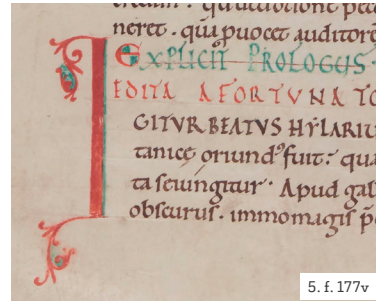 neret · qua puocet auditore
EXPLICIT PROLOGUS ·
EDITA A FORTUNATO
I GITVR BEATVS HYLARIU
tanice oriund⁹ fuit: qua
ta seiungitur · Apud gal
obscurus · immo magis p̄
5. f. 177v